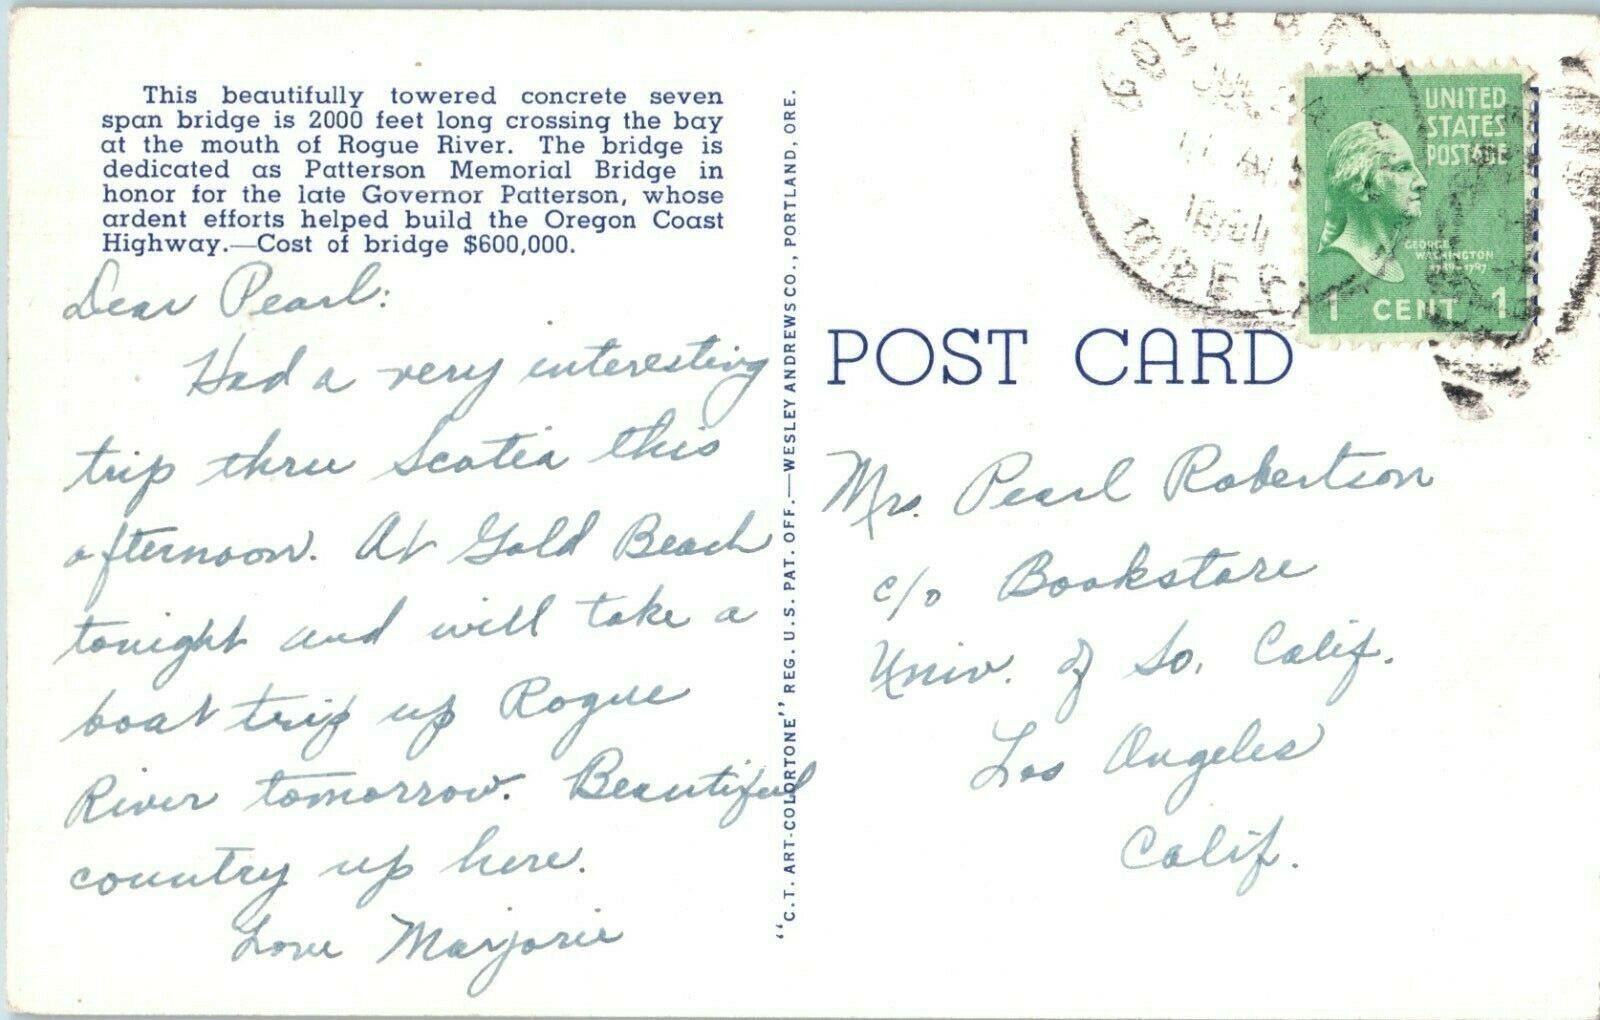 This beautifully towered concrete seven
span bridge is 2000 feet long crossing the bay
at the mouth of Rogue River. The bridge is
dedicated as Patterson Memorial Bridge in
honor for the late Governor Patterson, whose
ardent efforts helped build the Oregon Coast
Highway.—Cost of bridge $600,000.
Dear Pearl:
Had a very interesting
trip thru Scotia this
afternoon. At Gold Beach
tonight and will take a
boat trip up Rogue
River tomorrow. Beautiful
country up here.
Love Marjorie
"C.T. ART-COLORTONE" REG. U.S. PAT. OFF.—WESLEY ANDREWS CO., PORTLAND, ORE.
GOLD BEACH
UNITED
STATES
POSTAGE
GEORGE
WASHINGTON
1 CENT 1
POST CARD
Mrs. Pearl Robertson
c/o Bookstore
Univ. of So. Calif.
Los Angeles
Calif.